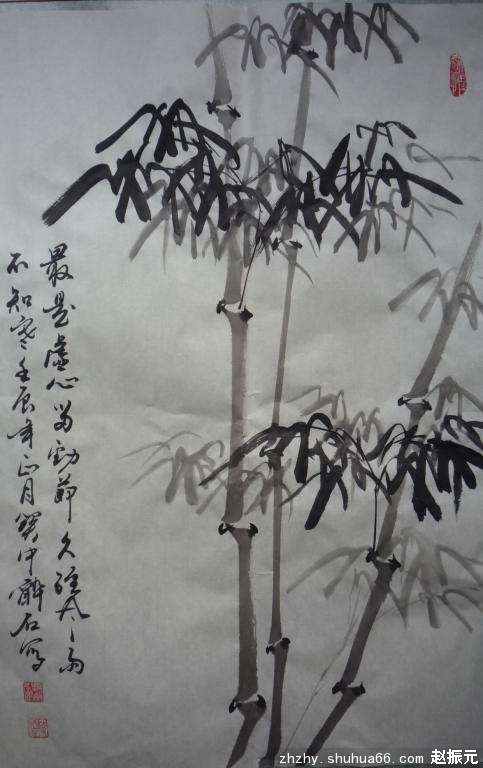 最是虚心留劲节久经风雨
不知寒壬辰年正月宝中辭石写
zhzhy.shuhua66.com 赵振元